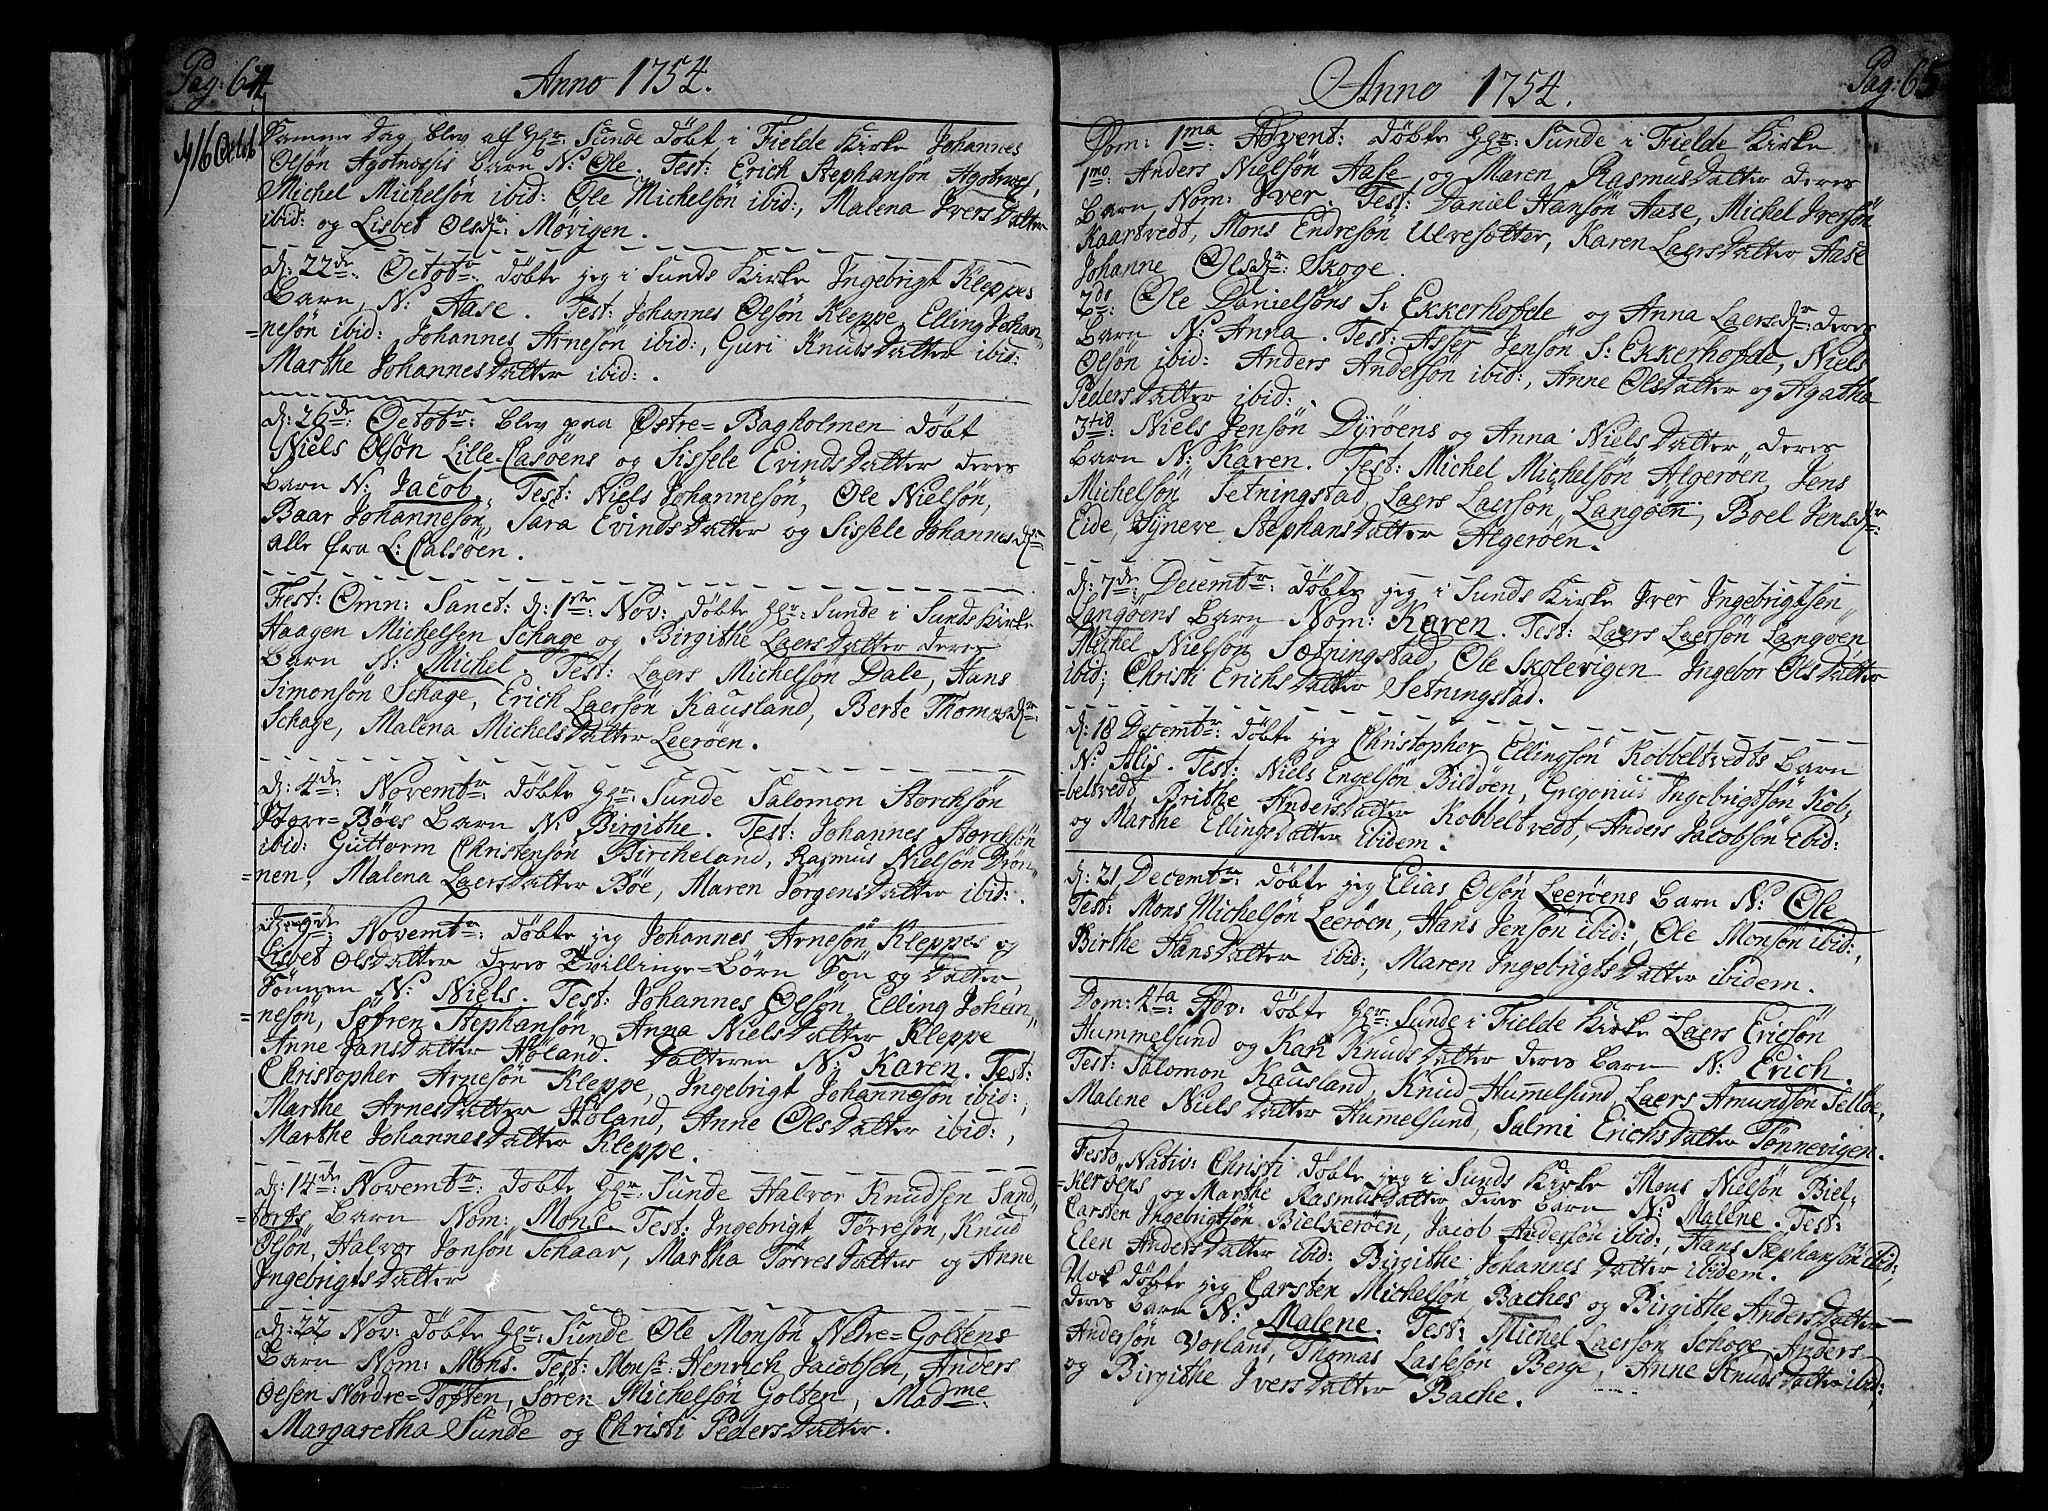 Pag: 64
Anno 1754.
d 16 Octb
Samme dag blev af Hr: Sunde døbt i Fielde Kirke Johannes
Olsön Agotnæssis barn N: Ole. Test: Erich Stephansön Agotnes,
Michel Michelsön ibid: Ole Michelsön ibid:, Malena Ivers datter
ibid: og Lisbet Olsdr: Mövigen.
d: 22de: Octobr: døbte jeg i Sunds Kirke Ingebrigt Kleppes
barn, N: Aase. Test: Johannes Olsön Kleppe, Elling Johan
=nesön ibid: Johannes Arnesön ibid:, Guri Knuds datter ibid:
Marthe Johannes datter ibid:.
d: 26de: Octobr: blev paa Østre=Bagholmen døbt
Niels Olsön Lille-Casöens og Sissele Evinds datter deres
barn N: Jacob. Test: Niels Johannesön, Ole Nielsön,
Baar Johannesön, Sara Evinds datter og Sissele Johannesdr:
alle fra L: Calsöen.
Fest: Omn: Sanct: d: 1ste: Nov: døbte Hr: Sunde i Sunds Kirke
Haagen Michelsen Schage og Birgithe Laers datter deres
barn N: Michel. Test: Laers Michelsön Dale, Hans
Simonsön Schage, Erich Laersön Kausland, Berte Thomasdr:
Schage, Malena Michels datter Leeröen.
d: 4de: Novembr: døbte Hr: Sunde Salomon Storchsön
Store=Böes barn N: Birgithe. Test: Johannes Storchsön
ibid: Guttorm Christensön Bircheland, Rasmus Nielsön Drön
=nen, Malena Laers datter Böe, Maren Jörgens datter ibid:.
d: 9de: Novembr: døbte jeg Johannes Arnesön Kleppes og
Lisbet Olsdatter deres Tvillinge=Börn Sön og datter
Sönnen N: Niels. Test: Johannes Olsön, Elling Johan
=nesön, Söfren Stephansön, Anna Niels datter Kleppe
Anne Jans datter Höland. datteren N: Karen. Test:
Christopher Arnesön Kleppe, Ingebrigt Johannesön ibid:,
Marthe Arnes datter Höland, Anne Ols datter ibid:,
Marthe Johannes datter Kleppe.
d: 14de: Novembr: døbte Hr: Sunde Halvor Knudsen Sand
=torfs barn Nom: Mons. Test: Ingebrigt Törresön, Knud
Olsön, Halvor Jonsön Schaar, Martha Törres datter og Anne
Ingebrigts datter
d: 22 Nov: døbte Hr: Sunde Ole Monsön Nedre=Goltens
barn Nom: Mons. Test: Monsr: Henrich Jacobsen, Anders
Olsen Nordre=Toften, Sören Michelsön Golten, Madme
Margaretha Sunde og Christi Peders datter.
Anno 1754.
Pag: 65
Dom: 1ma: Advent: døbte Hr: Sunde i Fielde Kirke
1mo: Anders Nielsön Aase og Maren Rasmus datter deres
barn Nom: Iver. Test: Daniel Hansön Aase, Michel Iversön
Kaartvedt, Mons Endresön Ulvesötter, Karen Laers datter Aase
Johanne Olsdr: Skoge.
2do: Ole Danielsöns S: Ekkerhofde og Anna Laersdr: deres
barn N: Anna. Test: Asser Jensön S: Ekkerhofde, Niels
Olsön ibid: Anders Andersön ibid:, Anne Olsdatter og Agatha
Peders datter ibid:
3tio: Niels Jensön Dyröens og Anna Niels datter, deres
barn N: Karen. Test: Michel Michelsön Algeröen, Jens
Michelsön Setningstad, Laers Laersön, Langöen, Boel Jensdr:
Eide, Synere Stephans datter Algeröen.
d: 7de: Decembr: døbte jeg i Sunds Kirke Iver Ingebrigtsen
Langöens barn Nom: Karen. Test: Laers Laersön Langöen
Michel Nielsön Setningstad, Ole Skolevigen Ingebor Ols datter
ibid; Christi Erichs datter Setningstad.
d: 18 Decembr: døbte jeg Christopher Ellingsön Kobbeltvedts barn
N: Alis. Test: Niels Engelsön Bildöen, Gregorius Ingebrigtsön Kob=
=beltvedt, Brithe Anders datter Kobbeltvedt, Anders Jacobsön ibid:
og Marthe Ellings datter ibidem.
d: 21 Decembr: døbte jeg Elias Olsön Leeröens barn N: Ole
Test: Mons Michelsön Leeröen, Hans Jensön ibid:, Ole Monsön ibid:,
Birthe Hans datter ibid:, Maren Ingebrigts datter ibidem.
Dom: 4ta: Adv: døbte Hr: Sunde i Fielde Kirke Laers Ericsön
Hummelsund og Kari Knuds datter deres barn N: Erich.
Test: Salomon Kausland, Knud Hummelsund, Laers Amundsön Telløe,
Malene Niels datter Hummelsund, Salmi Erichs datter Tönnevigen.
Festo Nativ: Christi døbte jeg i Sunds Kirke Mons Nielsön Biel=
=keröens og Marthe Rasmus datter deres barn N: Malene. Test:
Carsten Ingebrigtsön Bielkeröen, Jacob Andersön ibid:, Hans Stephansön ibid:,
Elen Anders datter ibid: Birgithe Johannes datter ibidem.
Nok døbte jeg Carsten Michelsön Baches og Birgithe Anders datter
deres barn N: Malene. Test: Michel Laersön Schoge, Anders
Andersön Vorland, Thomas Lassesön Berge, Anne Knuds datter ibid:
og Birgithe Ivers datter Bache.